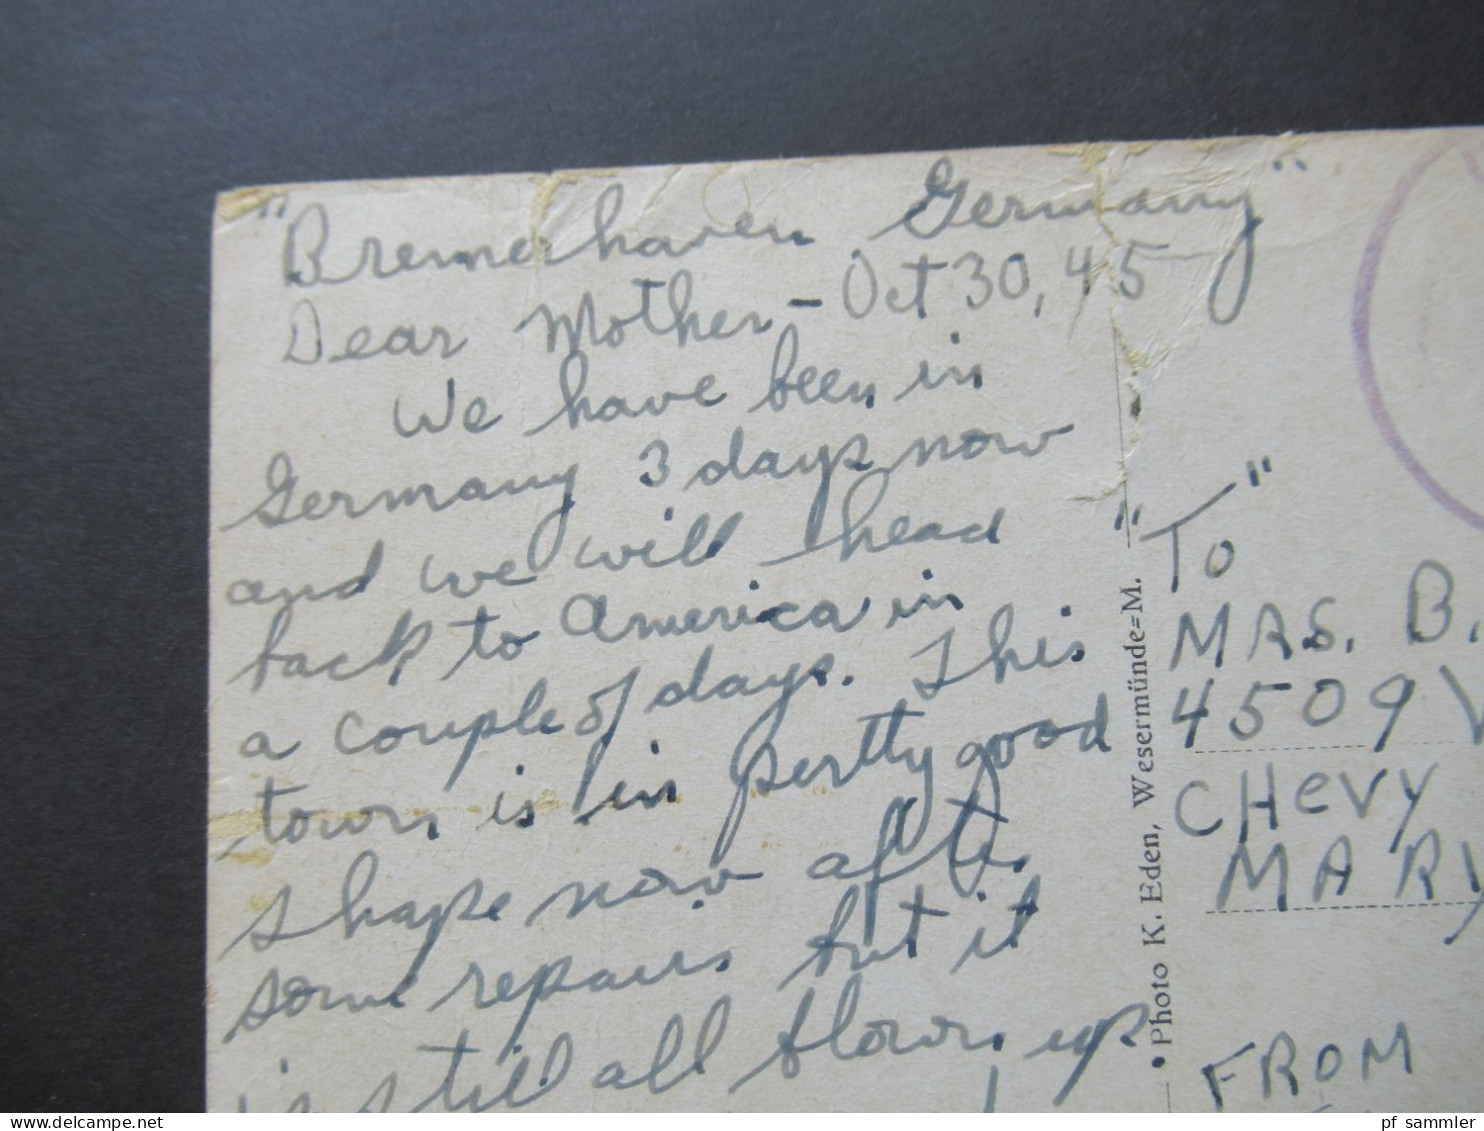 "Bremerhaven Germany"
Dear Mother - Oct 30, 45
We have been in
Germany 3 days now
and we will head
back to America in
a couple of days. This
town is in pertty good
shape now after
some repairs but it
is still all blown up
• Photo K. Eden, Wesermünde=M.
"To"
MRS. B.
4509
CHEVY
MARY
FROM
www.delcampe.net
pf_sammler